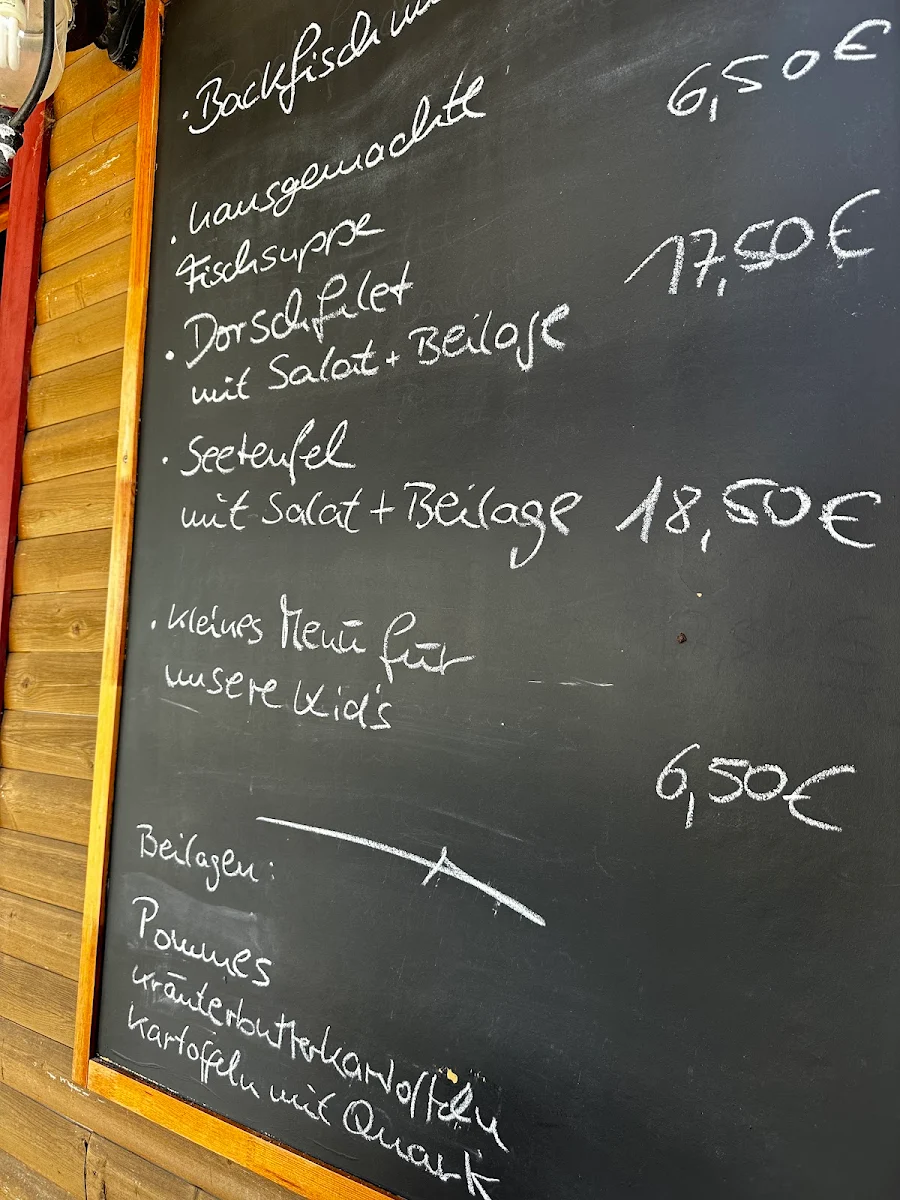 · Backfisch
· hausgemachte 6,50€
Fischsuppe
· Dorschfilet 17,50€
mit Salat + Beilage
· Seeteufel
mit Salat + Beilage 18,50€
· kleines Menü für
unsere Kid's
6,50€
Beilagen:
Pommes
Kräuterbutterkartoffeln
Kartoffeln mit Quark